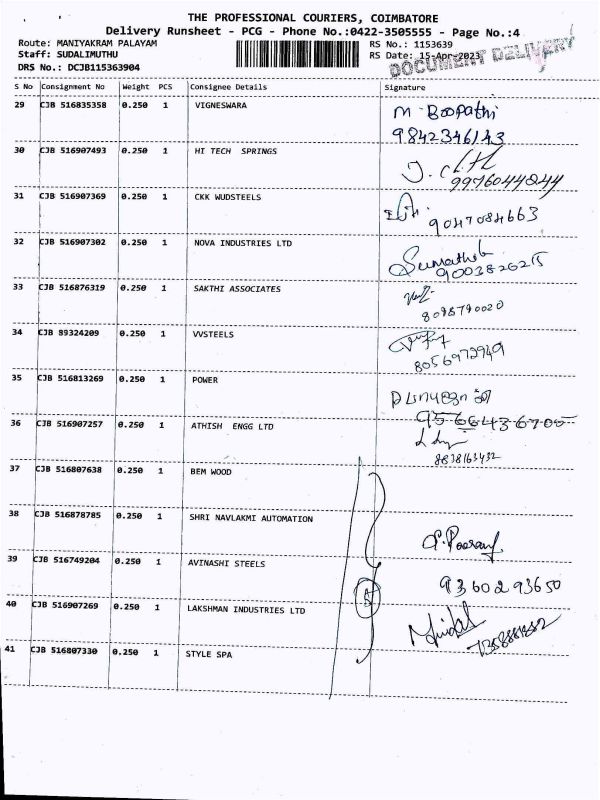 THE PROFESSIONAL COURIERS, COIMBATORE
Delivery Runsheet - PCG - Phone No.:0422-3505555 - Page No.:4
Route: MANIYAKRAM PALAYAM
RS No.: 1153639
Staff: SUDALIMUTHU
RS Date: 15-Apr-2023
DRS No.: DCJB115363904
DOCUMENT DELIVERY
S No Consignment No Weight PCS Consignee Details Signature
29 CJB 516835358 0.250 1 VIGNESWARA M. Boopathi
9842346143
30 CJB 516907493 0.250 1 HI TECH SPRINGS
9976044844
31 CJB 516907369 0.250 1 CKK WUDSTEELS
9047084663
32 CJB 516907302 0.250 1 NOVA INDUSTRIES LTD
33 CJB 516876319 0.250 1 SAKTHI ASSOCIATES
8098790020
34 CJB 89324209 0.250 1 VVSTEELS
8056972949
35 CJB 516813269 0.250 1 POWER
36 CJB 516907257 0.250 1 ATHISH ENGG LTD
8838163432
37 CJB 516807638 0.250 1 BEM WOOD
38 CJB 516878785 0.250 1 SHRI NAVLAKMI AUTOMATION
39 CJB 516749204 0.250 1 AVINASHI STEELS 9360293650
40 CJB 516907269 0.250 1 LAKSHMAN INDUSTRIES LTD
41 CJB 516807330 0.250 1 STYLE SPA